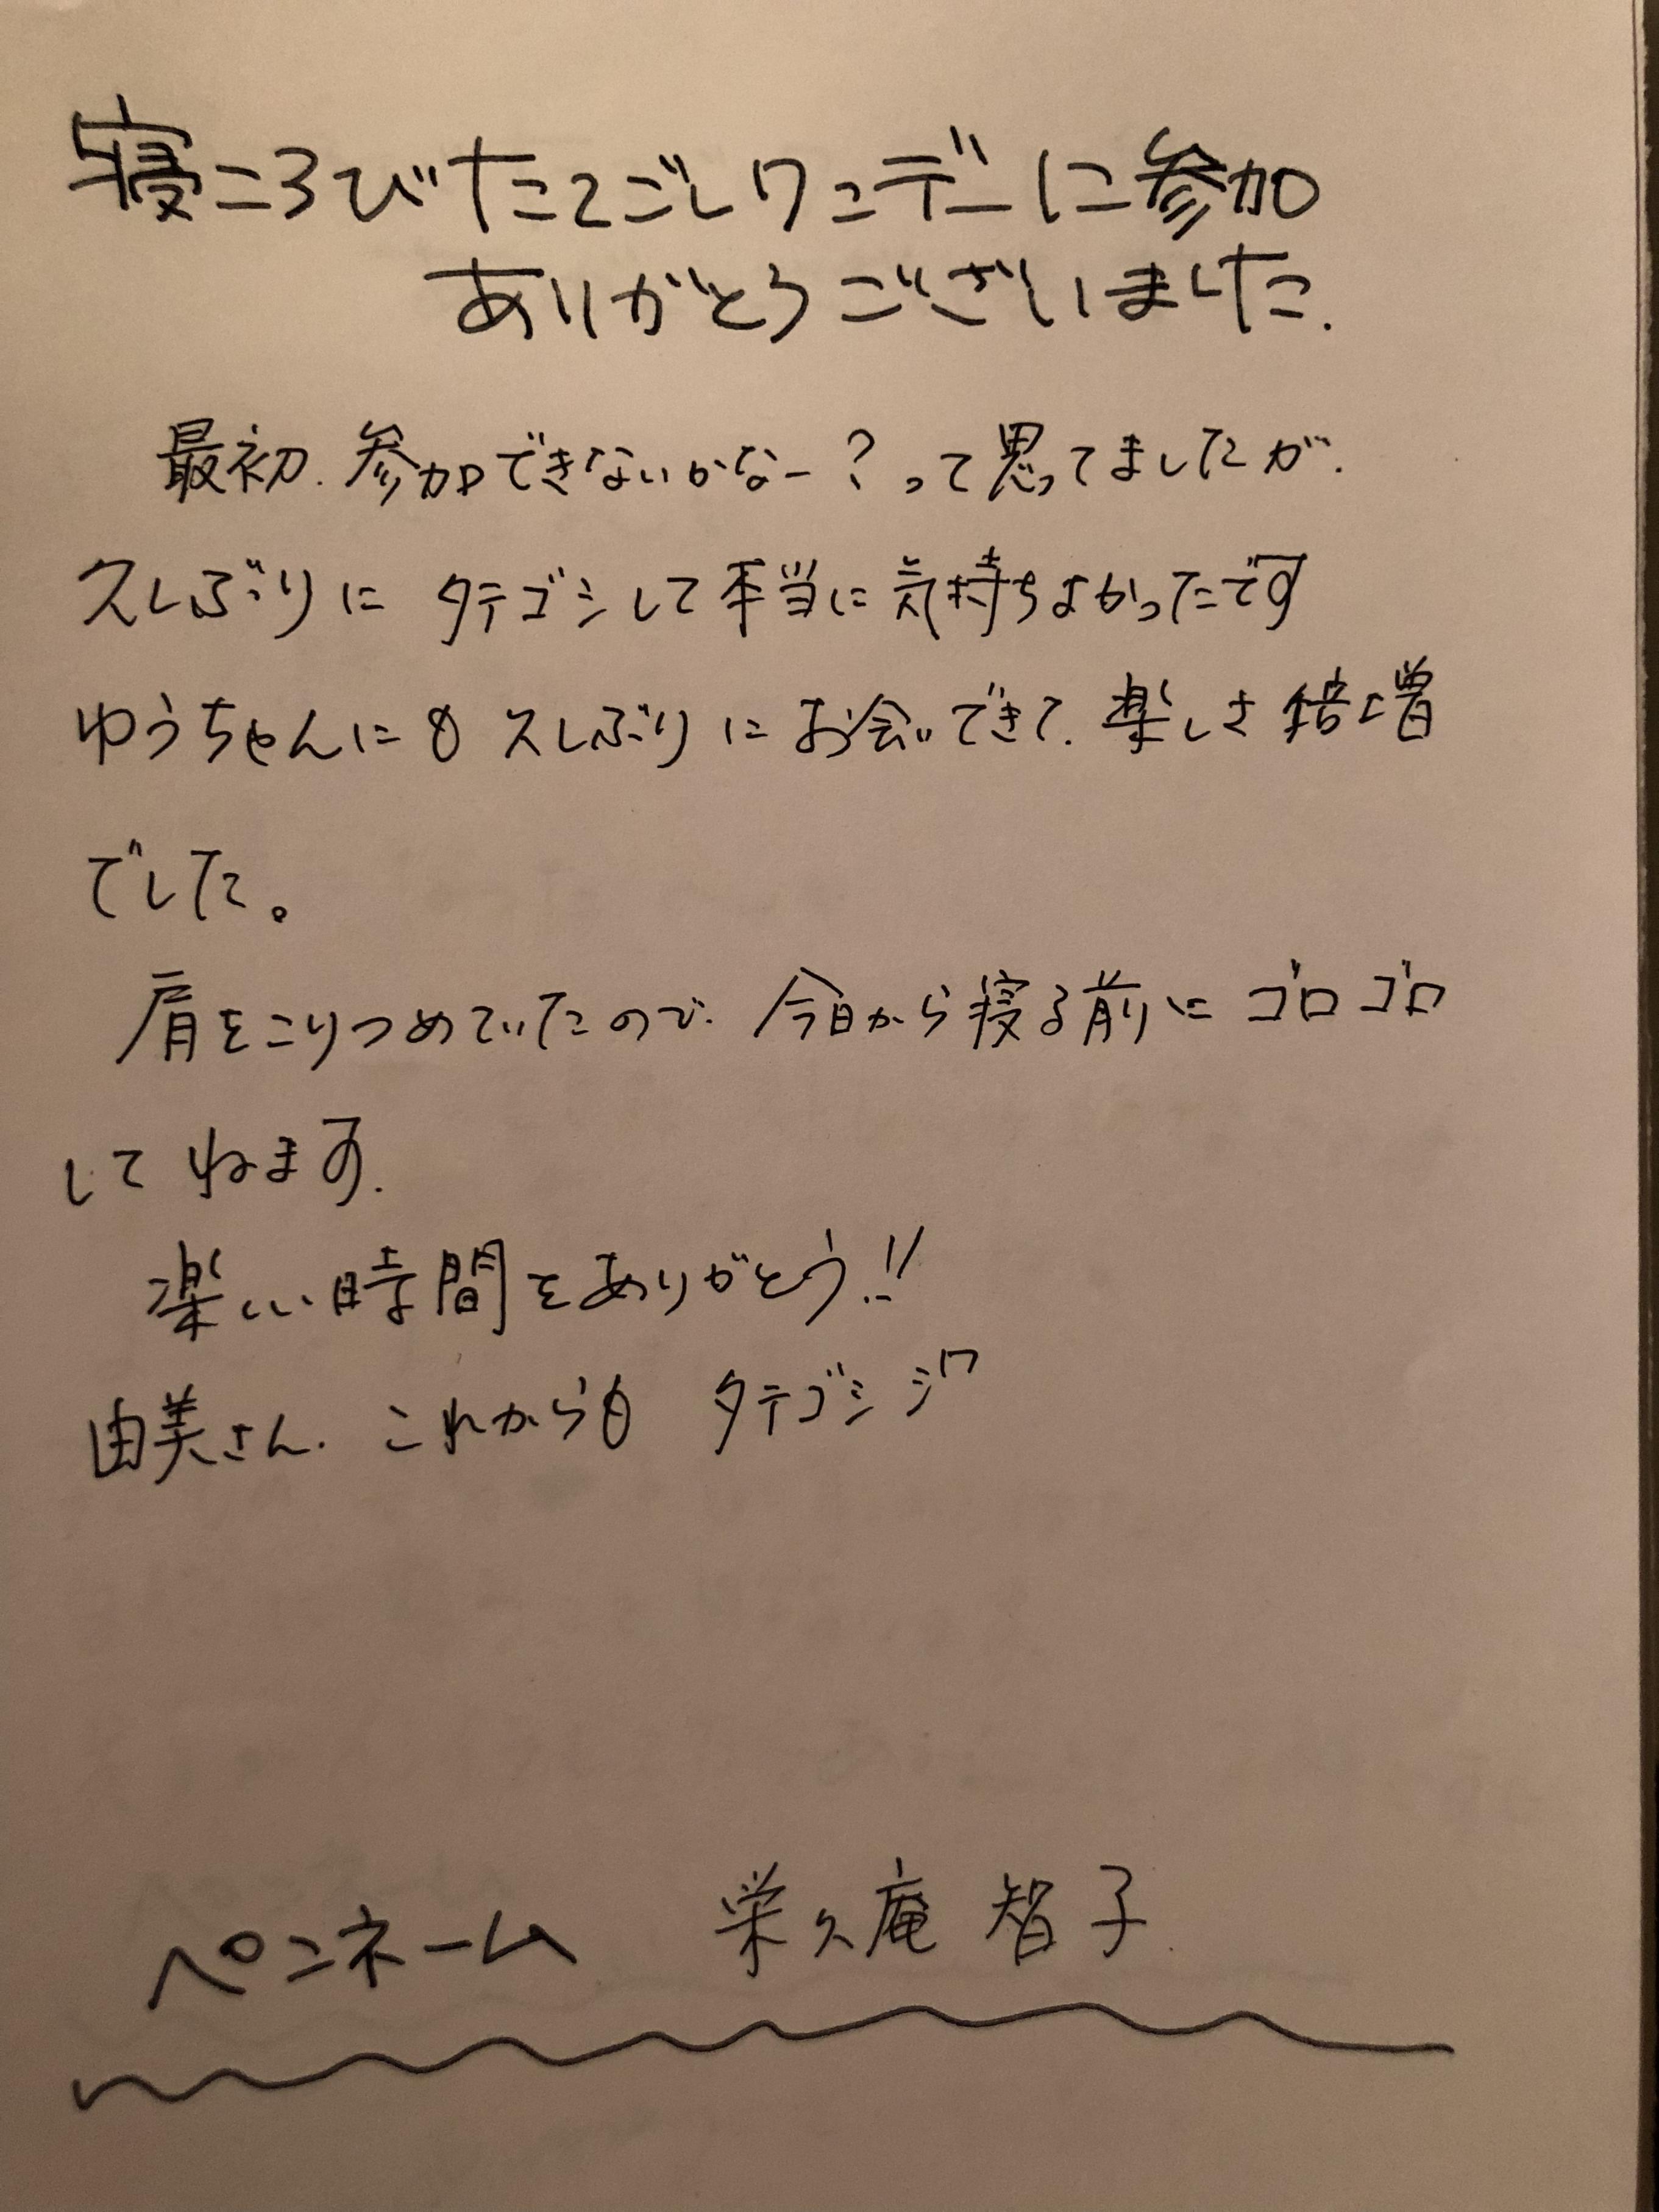 寝ころびたてごしワンデーに参加
ありがとうございました.
最初. 参加できないかなー？って思ってましたが.
久しぶりに タテゴシして本当に気持ちよかったです
ゆうちゃんにも 久しぶりにお会いできて. 楽しさ倍増
でした。
肩をこりつめていたので. 今日から寝る前に ゴロゴロ
して ねます.
楽しい時間をありがとう!!
由美さん. これからも タテゴシ
ペンネーム 栄久庵 智子